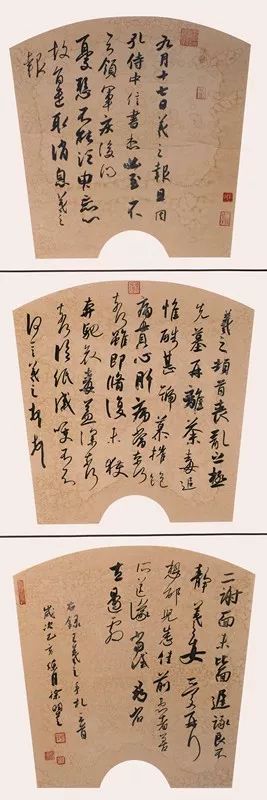 九月十七日羲之報且因
孔侍中信書想必至不
知領軍疾後問
憂懸不能須臾忘心
故旨遣取消息羲之
報
羲之頓首喪亂之極
先墓再離荼毒追
惟酷甚號慕摧絕
痛貫心肝痛當奈何
奈何雖即脩復未獲
奔馳哀毒益深奈何
奈何臨紙感哽不知
何言羲之頓首頓首
二謝面未比面遲詠良不
靜羲之女愛再拜
想邵兒悉佳前患者善
所送議當試尋省
左邊劇
右錄王羲之手札三首
歲次乙亥 月徐